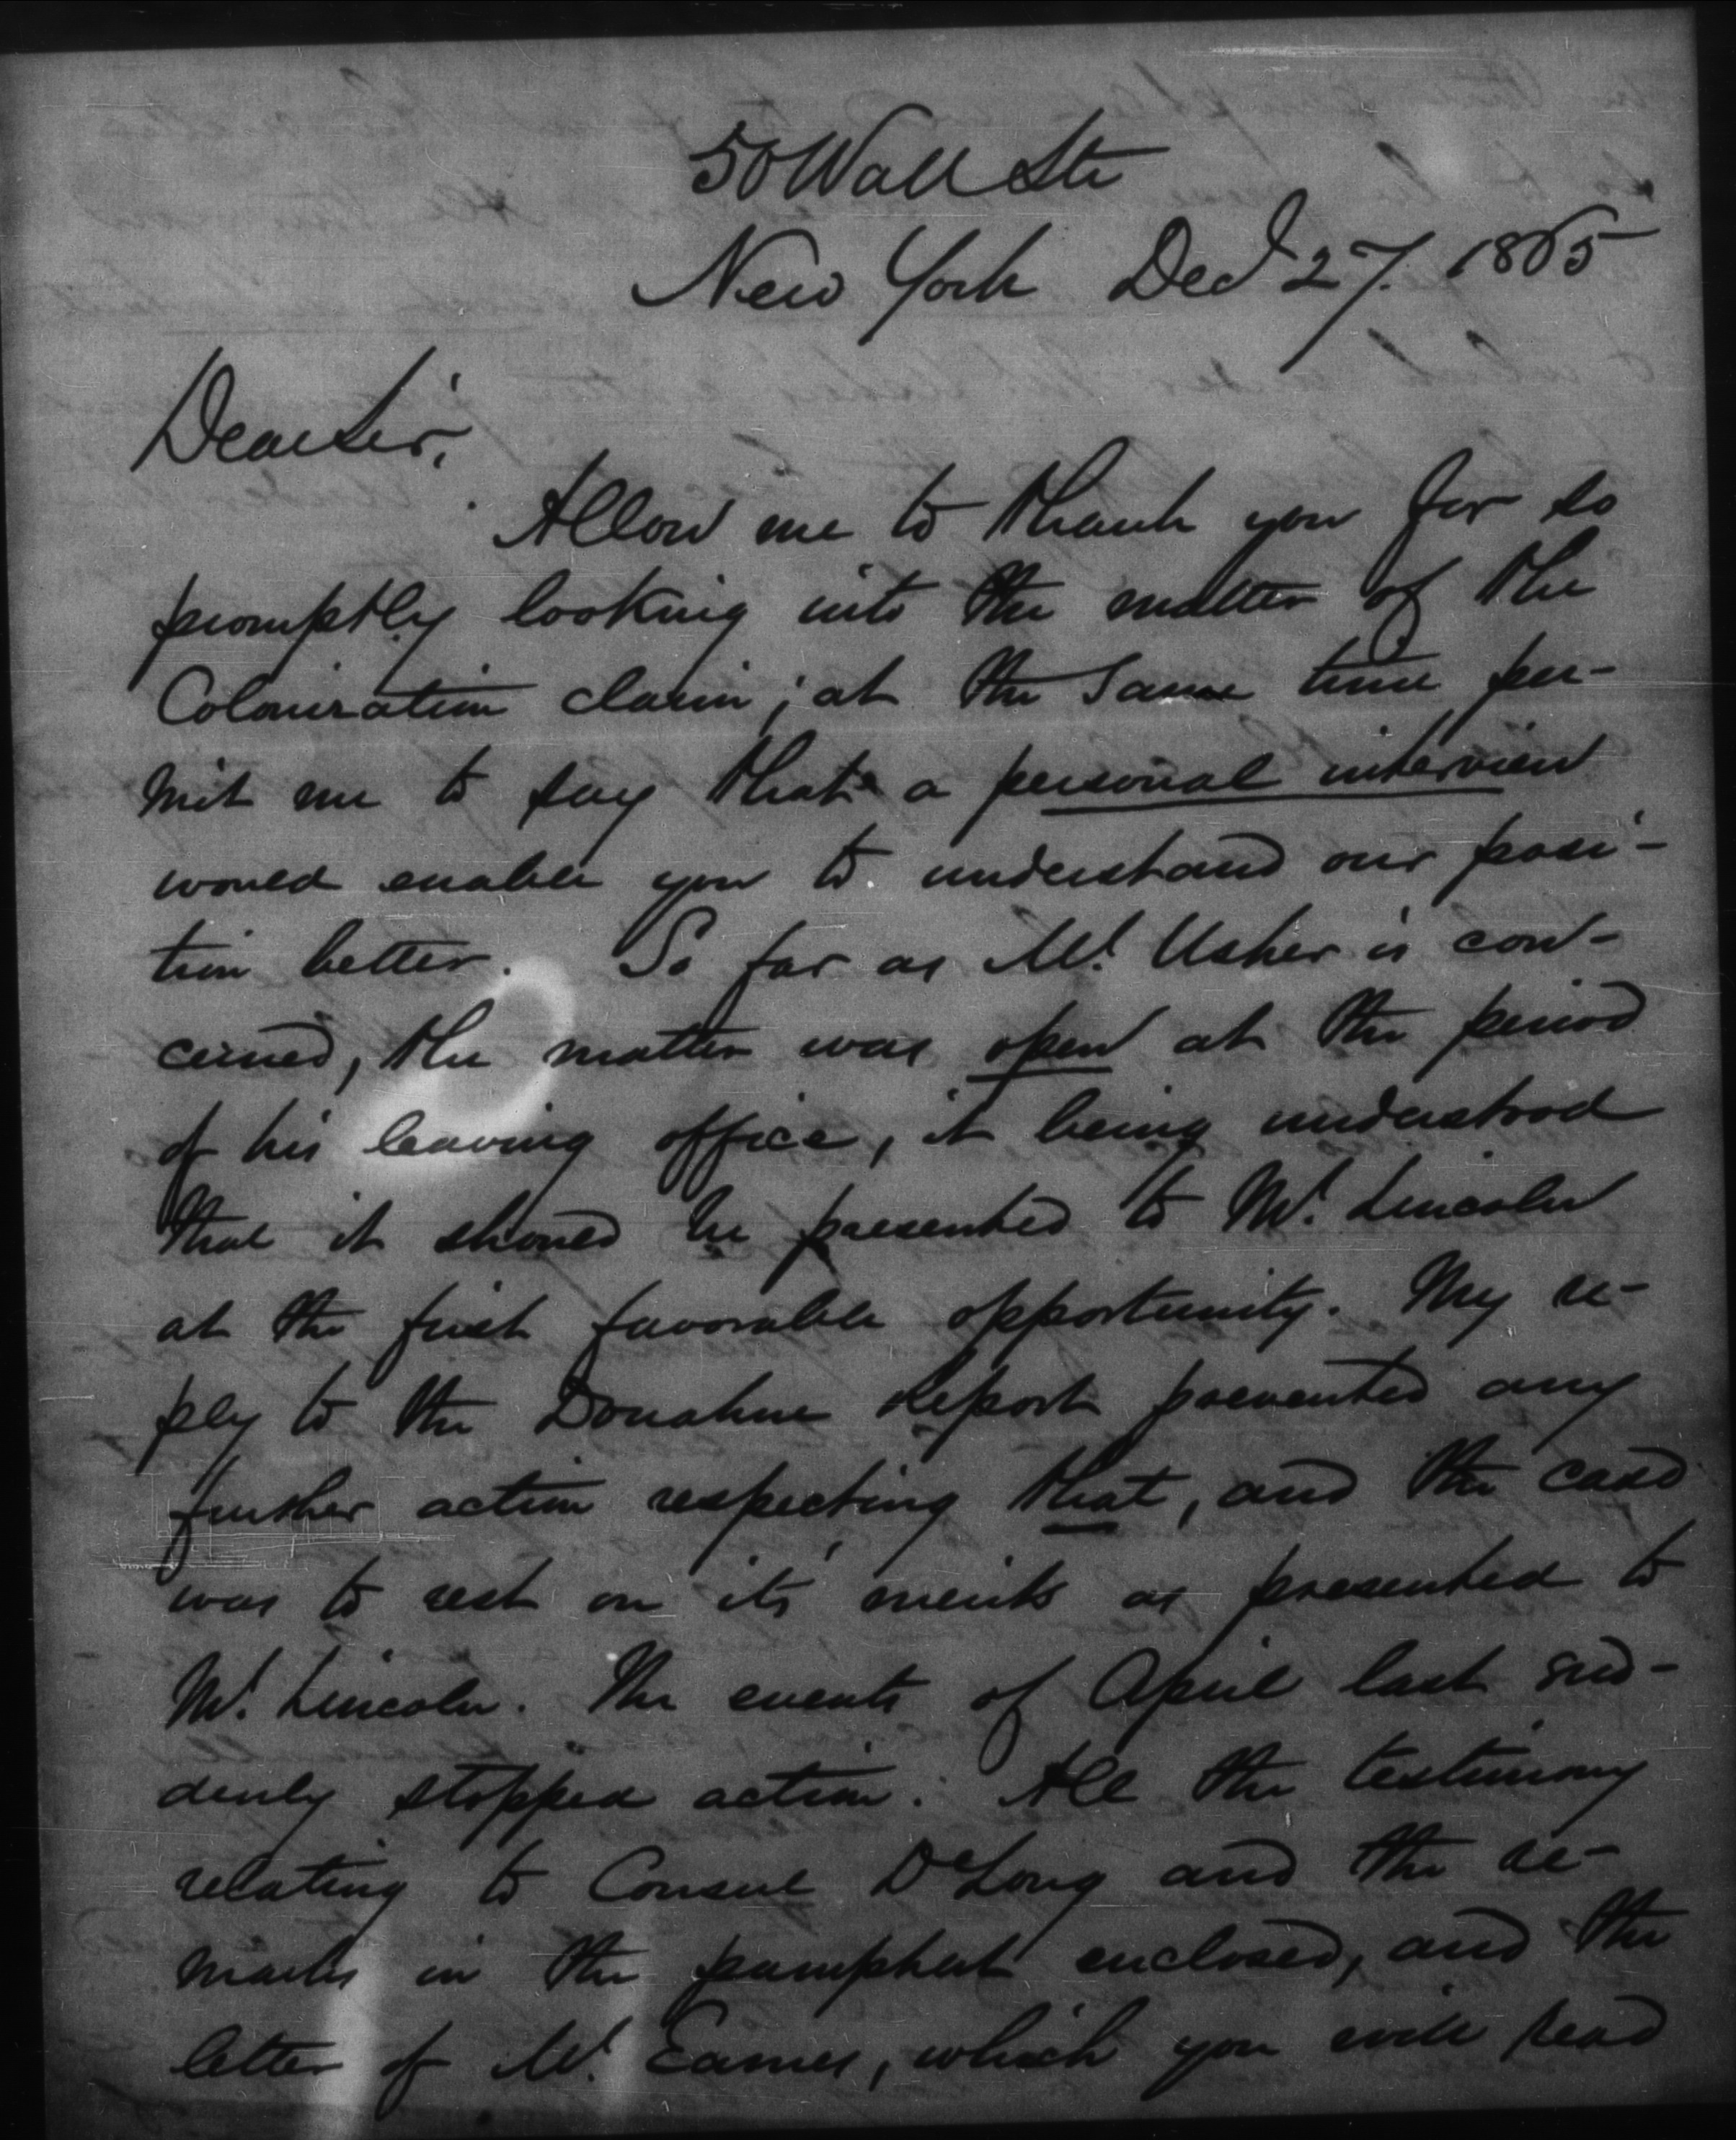 50 Wall Str
New York Decr 27. 1865
Dear Sir,
Allow me to thank you for so
promptly looking into the matter of the
Colonization claim; at the same time per-
mit me to say that a personal interview
would enable you to understand our posi-
tion better. So far as Mr. Usher is con-
cerned, the matter was open at the period
of his leaving office, it being understood
that it should be presented to Mr. Lincoln
at the first favorable opportunity. My re-
ply to the Donahue Report prevented any
further action respecting that, and the case
was to rest on its merits as presented to
Mr. Lincoln. The events of April last sud-
denly stopped action. All the testimony
relating to Consul DeLong and the re-
marks in the pamphlet enclosed, and the
letter of Mr. Eames, which you will read